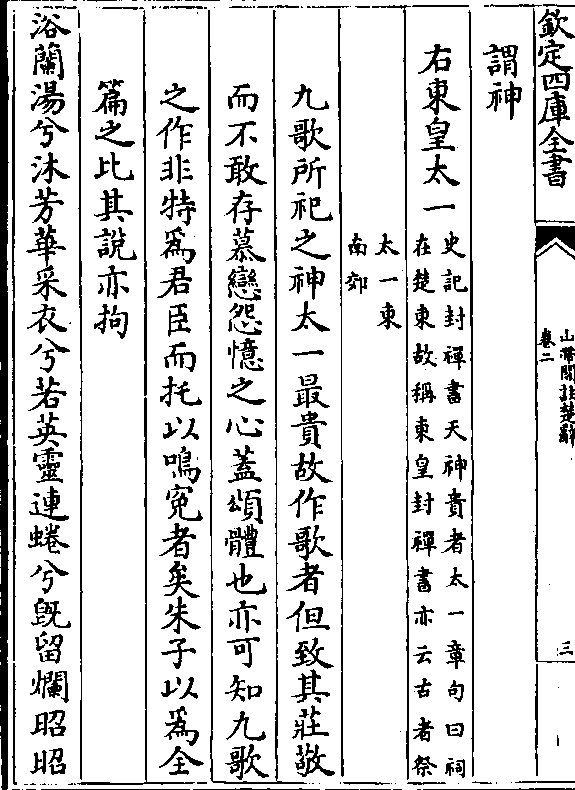 欽定四庫全書
山帶閣註楚辭
卷二
三
謂神
右東皇太一
史記封禪書天神貴者太一章句曰祠
在楚東故稱東皇封禪書亦云古者祭
太一東
南郊
九歌所祀之神太一最貴故作歌者但致其莊敬
而不敢存慕戀怨憶之心蓋頌體也亦可知九歌
之作非特為君臣而托以鳴冤者矣朱子以為全
篇之比其說亦拘
浴蘭湯兮沐芳華采衣兮若英靈連蜷兮既留爛昭昭